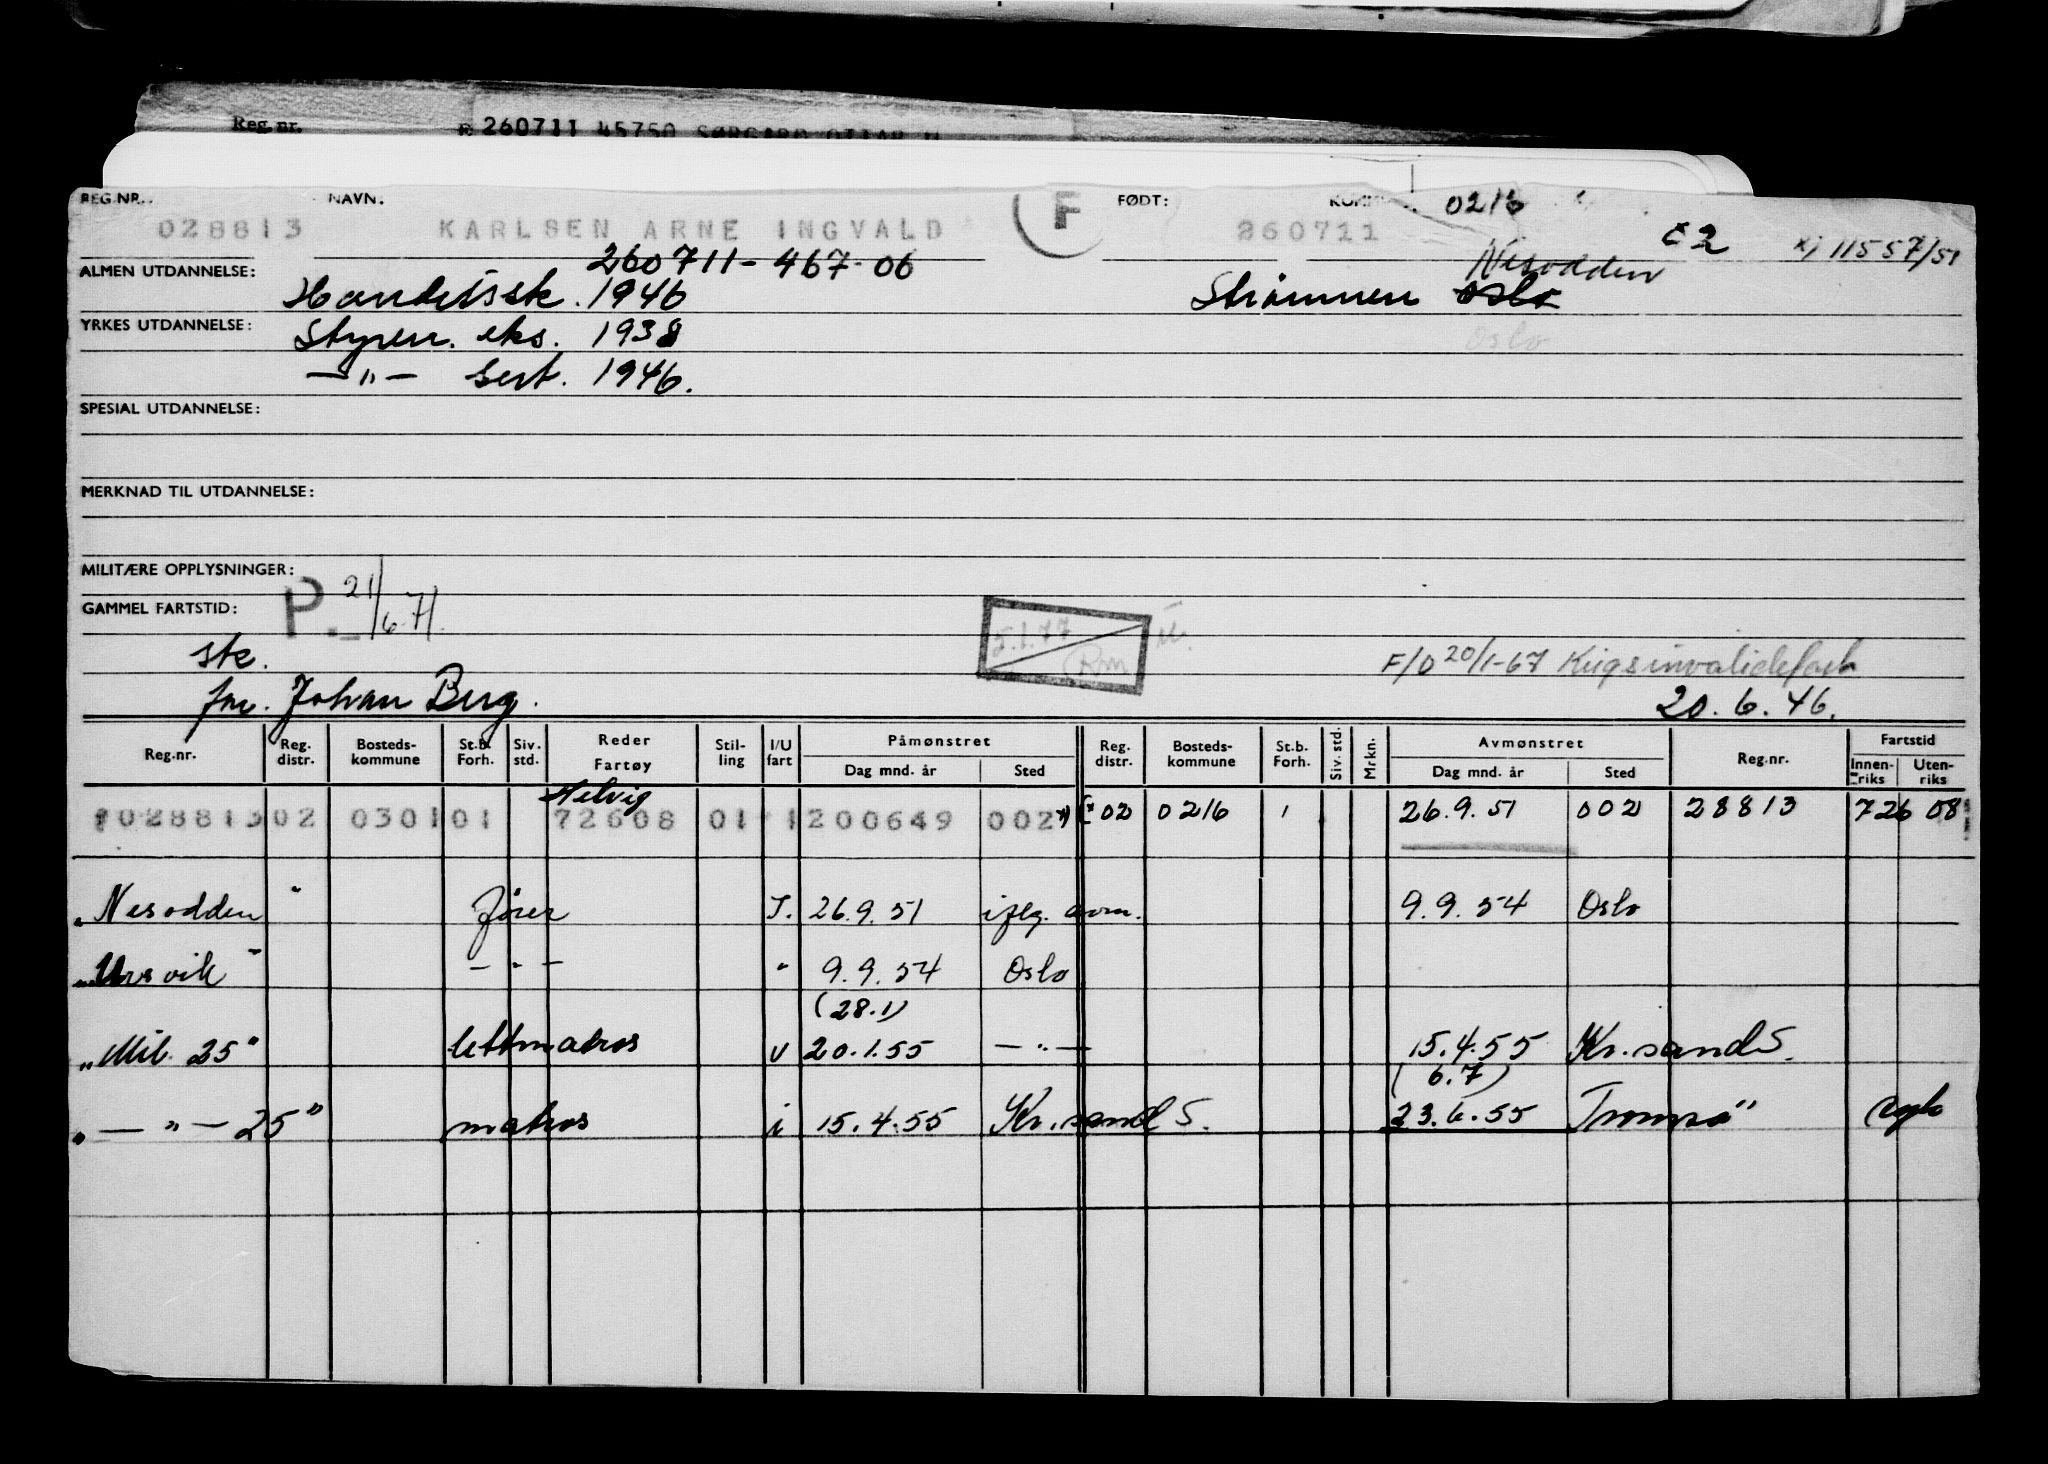 Reg.nr. 260711 45750
REG.NR. NAVN. F FØDT: 0216
028813 KARLSEN ARNE INGVALD 260711 Nesodden E2 x) 11557/51
260711-467-06
ALMEN UTDANNELSE: Handelssk. 1946 Strømmen Oslo
YRKES UTDANNELSE: Styrm. eks. 1938 Oslo
—"— Sert. 1946.
SPESIAL UTDANNELSE:
MERKNAD TIL UTDANNELSE:
MILITÆRE OPPLYSNINGER:
GAMMEL FARTSTID: P. 21/6.71.
5.1.77
stk. F/O 20/1-67
for. Johan Berg. 20.6.46.
Reg.nr. Reg. distr. Bosteds-kommune St.b. Forh. Siv. std. Reder Fartøy Stil-ling I/U fart Påmønstret Dag mnd. år Sted Reg. distr. Bosteds-kommune St.b. Forh. Siv. std. Mrkn. Avmønstret Dag mnd. år Sted Reg.nr. Fartstid Innen-riks Uten-riks
Helvig
028813 02 0301 01 72608 01 1 200649 002 x) (x 02 0216 1 26.9.51 002 28813 726 08
"Nesodden" fører I. 26.9.51 iflg. avm. 9.9.54 Oslo
"Ursvik" — " — " 9.9.54 Oslo
(28.1)
"Mil. 25" lettmatros U 20.1.55 — " — 15.4.55 Kr.sand S.
(6.7)
" — " — 25" matros i 15.4.55 Kr.sand S. 23.6.55 Tromsø